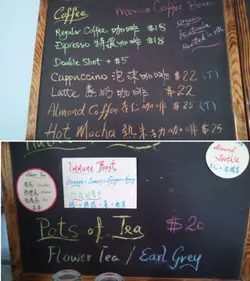 Coffee
Organic
Australia
Roasted in HK
Regular Coffee 咖啡 $18
Espresso 特濃咖啡 $18
Double Shot + $5
Cappuccino 泡沫咖啡 $22 (T)
Latte 鮮奶咖啡 $22
Almond Coffee 杏仁咖啡 $25 (T)
Hot Mocha 熱朱古力咖啡 $25
Immune Boost
Orange + Lemon + Ginger + Honey
Almond
Smoothie
Pots of Tea $20
Flower Tea / Earl Grey